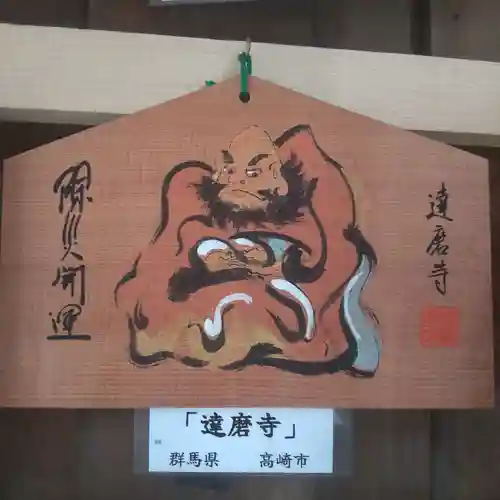 除災開運
達磨寺
「達磨寺」
群馬県 高崎市